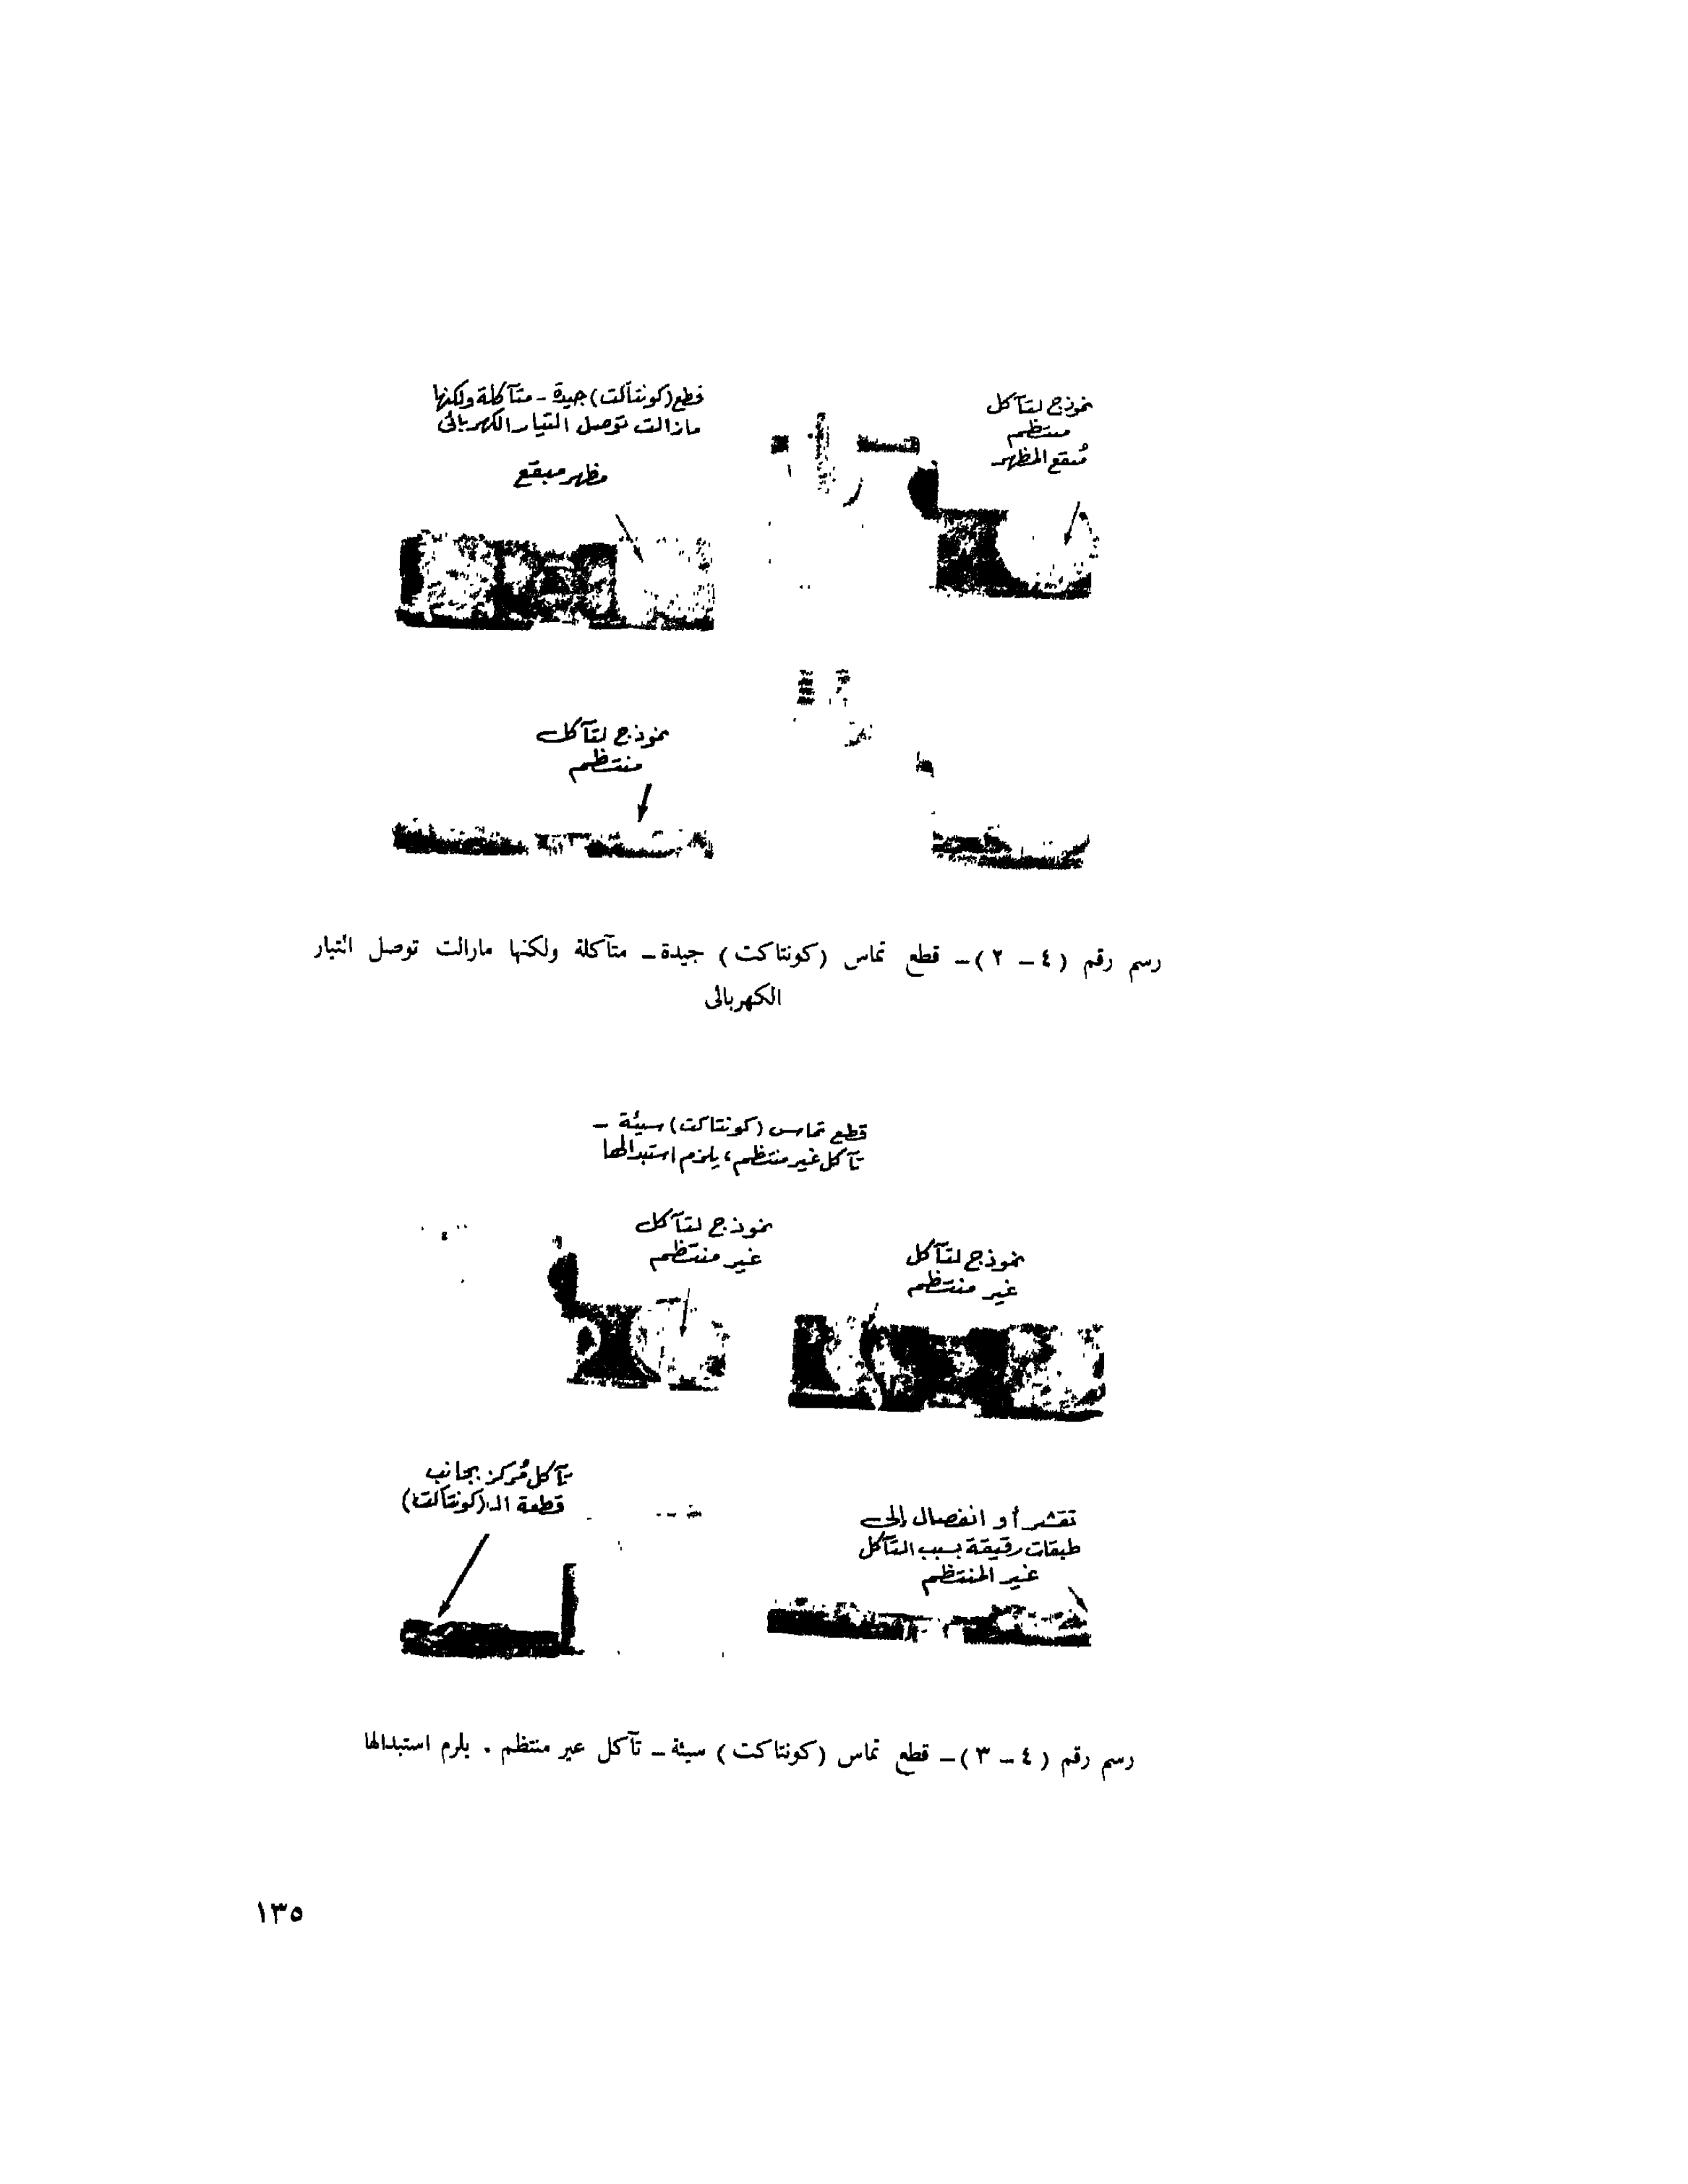 قطع (كونتاكت) جيدة - متآكلة ولكنها
مازالت توصل التيار الكهربائى
مظهر مبقع
نموذج لتآكل
منتظم
مُبقع المظهر
نموذج لتآكل
منتظم
رسم رقم (٤ – ٢) – قطع تماس (كونتاكت) جيدة – متآكلة ولكنها مازالت توصل التيار
الكهربائى
قطع تماس (كونتاكت) سيئة –
تآكل غير منتظم، يلزم استبدالها
نموذج لتآكل
غير منتظم
نموذج لتآكل
غير منتظم
تآكل مُركز بجانب
قطعة الـ (كونتاكت)
تقشر أو انفصال إلى
طبقات رقيقة بسبب التآكل
غير المنتظم
رسم رقم (٤ – ٣) – قطع تماس (كونتاكت) سيئة – تآكل غير منتظم . يلزم استبدالها
١٣٥